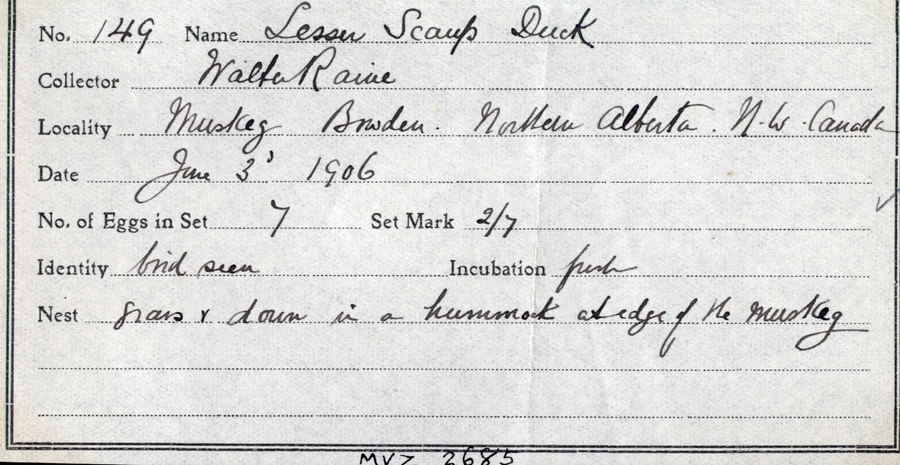 No. 149 Name Lesser Scaup Duck
Collector Walter Raine
Locality Muskeg Bowden. Northern Alberta. N.W. Canada
Date June 3' 1906
No. of Eggs in Set 7 Set Mark 2/7
Identity bird seen Incubation fresh
Nest grass & down in a hummock at edge of the muskeg
MVZ 2685